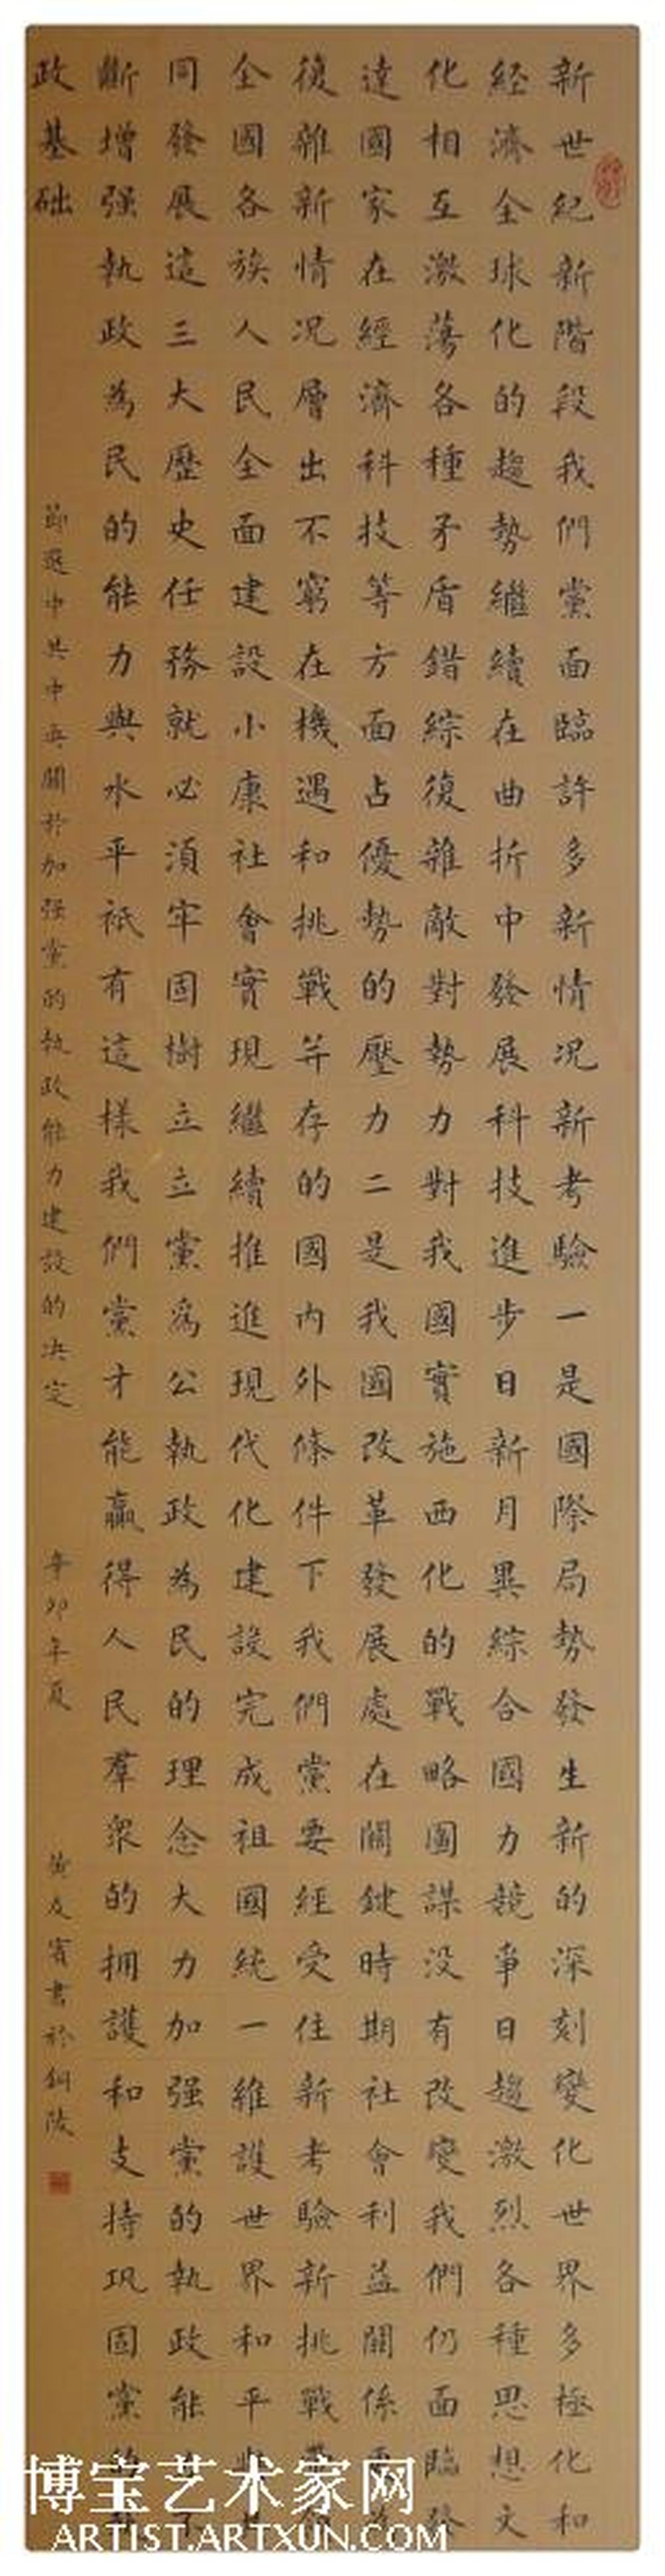 新世紀新階段我們黨面臨許多新情況新考驗一是國際局勢發生新的深刻變化世界多極化和
经濟全球化的趨勢繼續在曲折中發展科技進步日新月異綜合國力競爭日趨激烈各種思想文
化相互激蕩各種矛盾錯綜復雜敵對勢力對我國實施西化的戰略圖謀没有改變我們仍面臨發
達國家在經濟科技等方面占優勢的壓力二是我國改革發展處在關鍵時期社會利益關係
復雜新情况層出不窮在機遇和挑戰并存的國内外條件下我們黨要經受住新考驗新挑戰
全國各族人民全面建設小康社會實現繼續推進現代化建設完成祖國統一維護世界和平
同發展這三大歷史任務就必須牢固樹立立黨為公執政為民的理念大力加强黨的執政能
斷增强執政為民的能力與水平衹有這樣我們黨才能贏得人民羣衆的拥護和支持巩固黨
政基础
節選中共中央關於加强黨的執政能力建設的决定
辛卯年夏
友賓書於銅陵
博宝艺术家网
ARTIST.ARTXUN.COM